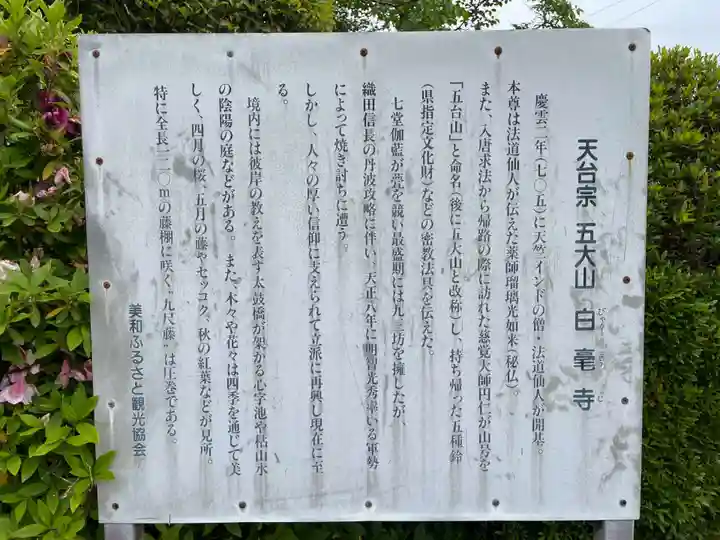 天台宗 五大山 白毫寺
びゃく ごう じ
慶雲二年(七〇五)に天竺(インド)の僧・法道仙人が開基。
本尊は法道仙人が伝えた薬師瑠璃光如来(秘仏)。
また、入唐求法から帰路の際に訪れた慈覚大師円仁が山号を
「五台山」と命名(後に五大山と改称)し、持ち帰った五種鈴
(県指定文化財)などの密教法具を伝えた。
七堂伽藍が甍を競い最盛期には九十三坊を擁したが、
織田信長の丹波攻略に伴い、天正八年に明智光秀率いる軍勢
によって焼き討ちに遭う。
しかし、人々の厚い信仰に支えられて立派に再興し現在に至
る。
境内には彼岸の教えを表す太鼓橋が架かる心字池や枯山水
の陰陽の庭などがある。また、木々や花々は四季を通じて美
しく、四月の桜、五月の藤やセッコク、秋の紅葉などが見所。
特に全長一二〇mの藤棚に咲く、九尺藤、は圧巻である。
美和ふるさと観光協会